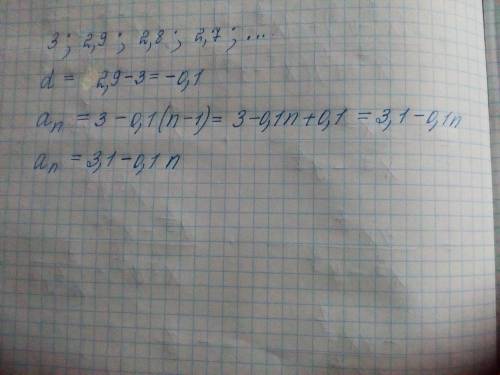 3; 2,9; 2,8; 2,7; ...
d = 2,9-3=-0,1
aₙ = 3-0,1(n-1)= 3-0,1n+0,1 = 3,1-0,1n
aₙ = 3,1-0,1 n